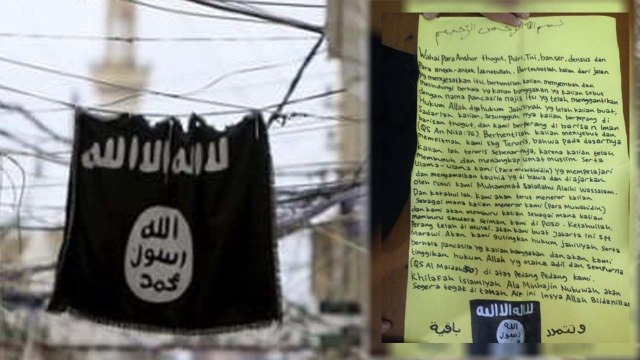 لا اله الا الله
الله
رسول
محمد
بسم الله الرحمن الرحيم
Wahai Para Anshor thogut, Polri, Tni, banser, densus dan
Para antek-antek Laknatullah. Bertaubatlah kalian dari jalan
yg menyesatkan itu, berhentilah kalian menyembah dan
melindungi berhala yg kalian banggakan yg kalian sebut
dengan nama pancasila najis itu yg telah menggantikan
Hukum Allah dg hukum Jahiliyah yg telah kalian buat,
Sadarlah kalian, Sesungguh nya kalian berperang di
barisan thogut, dan kami berperang di barisan Iman
(QS An Nisa:76). Berhentilah kalian menyebut dan
memfitnah kami sbg Teroris, bahwa pada dasarnya
Kalian lah teroris Sebenarnya, karena kalian telah
Membunuh dan menangkap umat muslim. Serta
Ulama-Ulama kami (Para Muwahidin) yg mempelajari
dan mengamalkan tauhid yg di bawa dan di ajarkan
oleh Rosul kami Muhammad Salallahu Alaihi Wassalam.
Dan Ketahuilah, Kami akan terus meneror kalian
Sebagai mana kalian meneror kami (Para Muwahidin)
dan kami akan memburu kalian sebagai mana kalian
memburu Saudara Seiman kami di Poso. Ketahuilah,
Perang telah di mulai, akan kami buat Jakarta ini spt
Marawi. Akan kami gulingkan hukum Jahiliyah serta
berhala pancasila yg kalian banggakan dan akan kami
tinggikan hukum Allah yg maha adil dan Sempurna
(QS Al Maidah:50) di atas Pedang Pedang kami.
Khilafah Islamiyah Ala Minhajin Nubuwah akan
Segera tegak di tanah Air ini Insya Allah Biidznillah
لا اله الا الله
باقية
وتتمدد